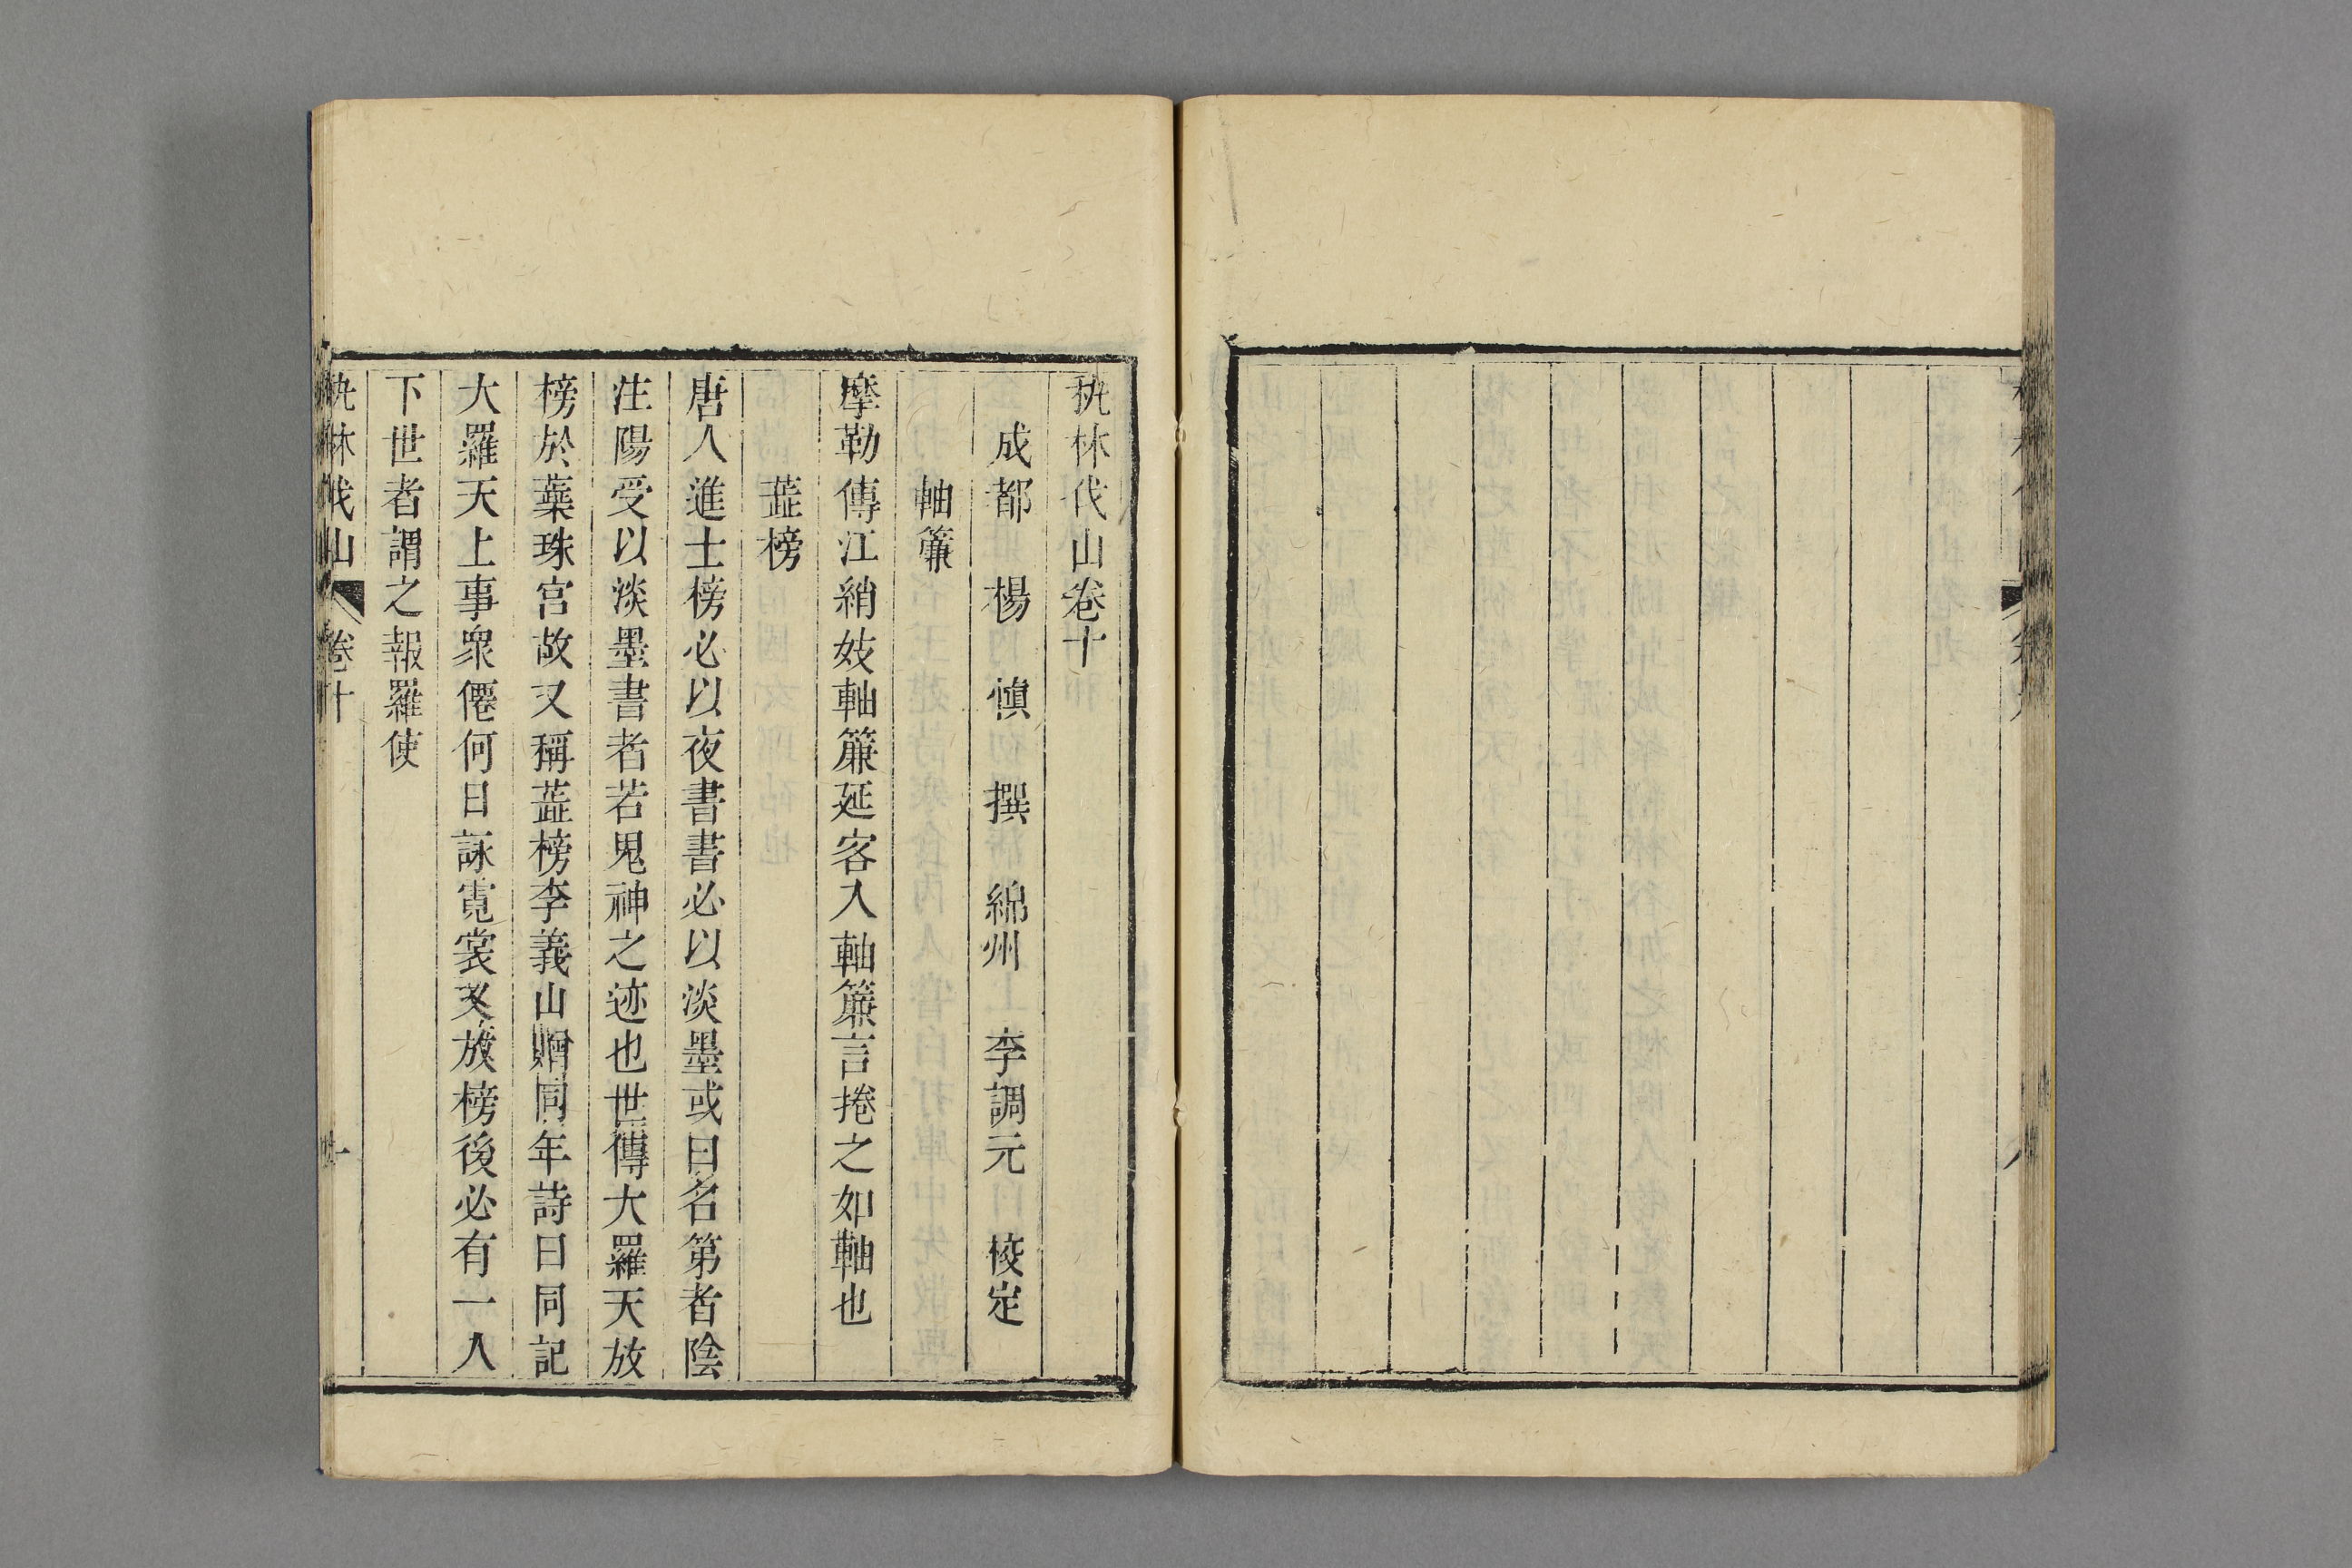 秇林伐山卷十
成都 楊 愼 撰 綿州 李調元 校定
軸簾
摩勒傳江綃妓軸簾延客入軸簾言捲之如軸也
蘂榜
唐人進士榜必以夜書書必以淡墨或曰名第者陰
注陽受以淡墨書者若鬼神之迹也世傳大羅天放
榜於蘂珠宮故又稱蘂榜李義山贈同年詩曰同記
大羅天上事衆僊何日詠霓裳又放榜後必有一人
下世者謂之報羅使
秇林伐山 卷十 一